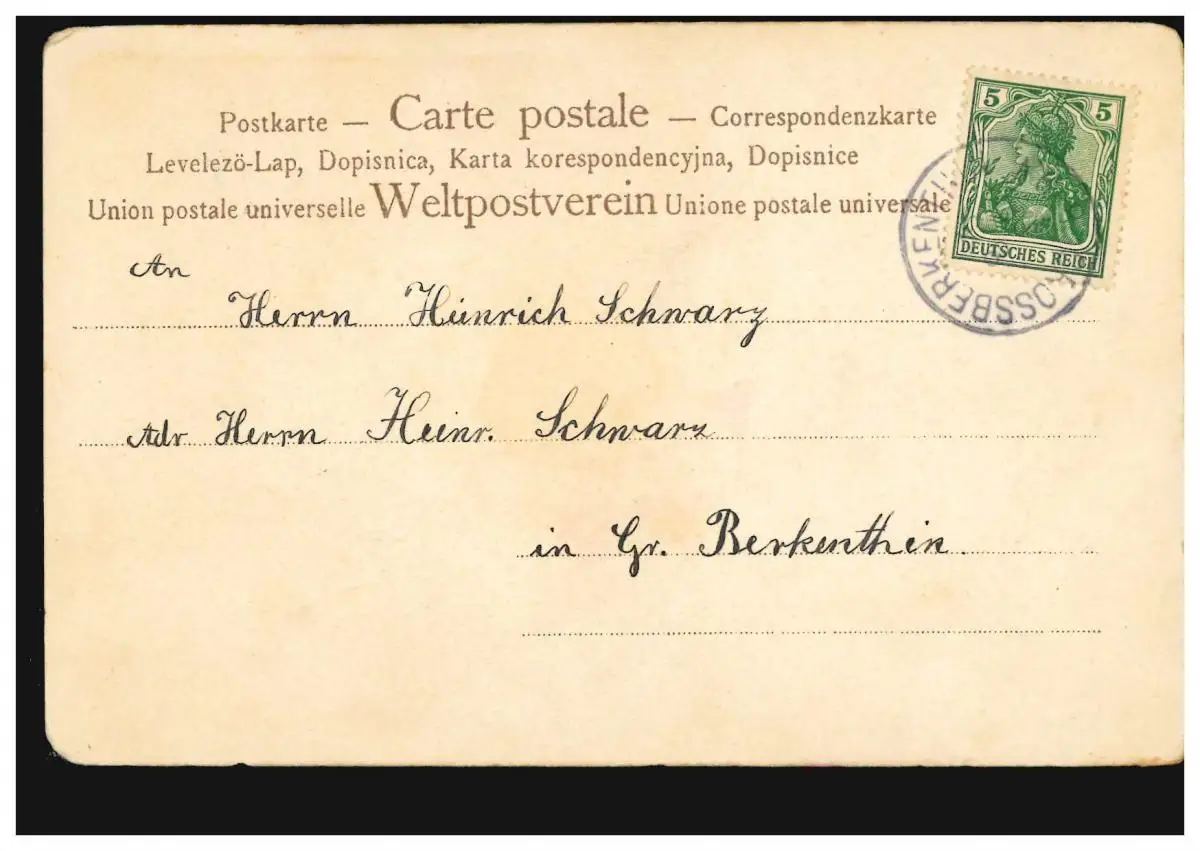 Postkarte — Carte postale — Correspondenzkarte
Levelezö-Lap, Dopisnica, Karta korespondencyjna, Dopisnice
Union postale universelle Weltpostverein Unione postale universale
5 5
DEUTSCHES REICH
An
Herrn Heinrich Schwarz
Adr Herrn Heinr. Schwarz
in Gr. Berkenthin.